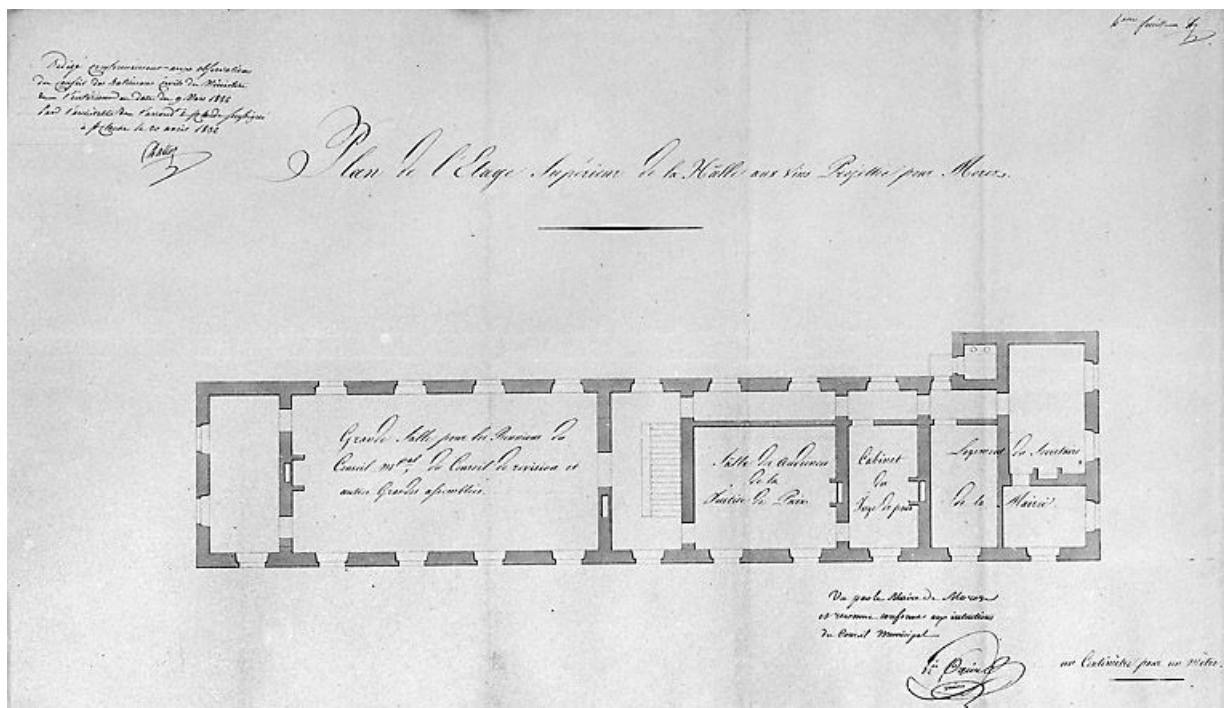 Rédigé conformément aux observations
du Conseil des Batimens Civils du Ministère
de l'intérieur en date du 9 Mars 1832
Par l'architecte de l'arrond.t de St Claude soussigné
à St Claude le 20 avril 1832
Plan de l'Etage Supérieur de la Halle aux vins Projettée pour Morez.
Grande Salle pour les Réunions du
Conseil m.pal du Conseil de révision et
autres Grandes assemblées.
Salle des Audiences
de la
Justice de Paix
Cabinet
du
Juge de paix
Logement du Secrétaire
de la Mairie
Vu par le Maire de Morez
et reconnu conforme aux intentions
du Conseil Municipal
un Centimètre pour un mètre.